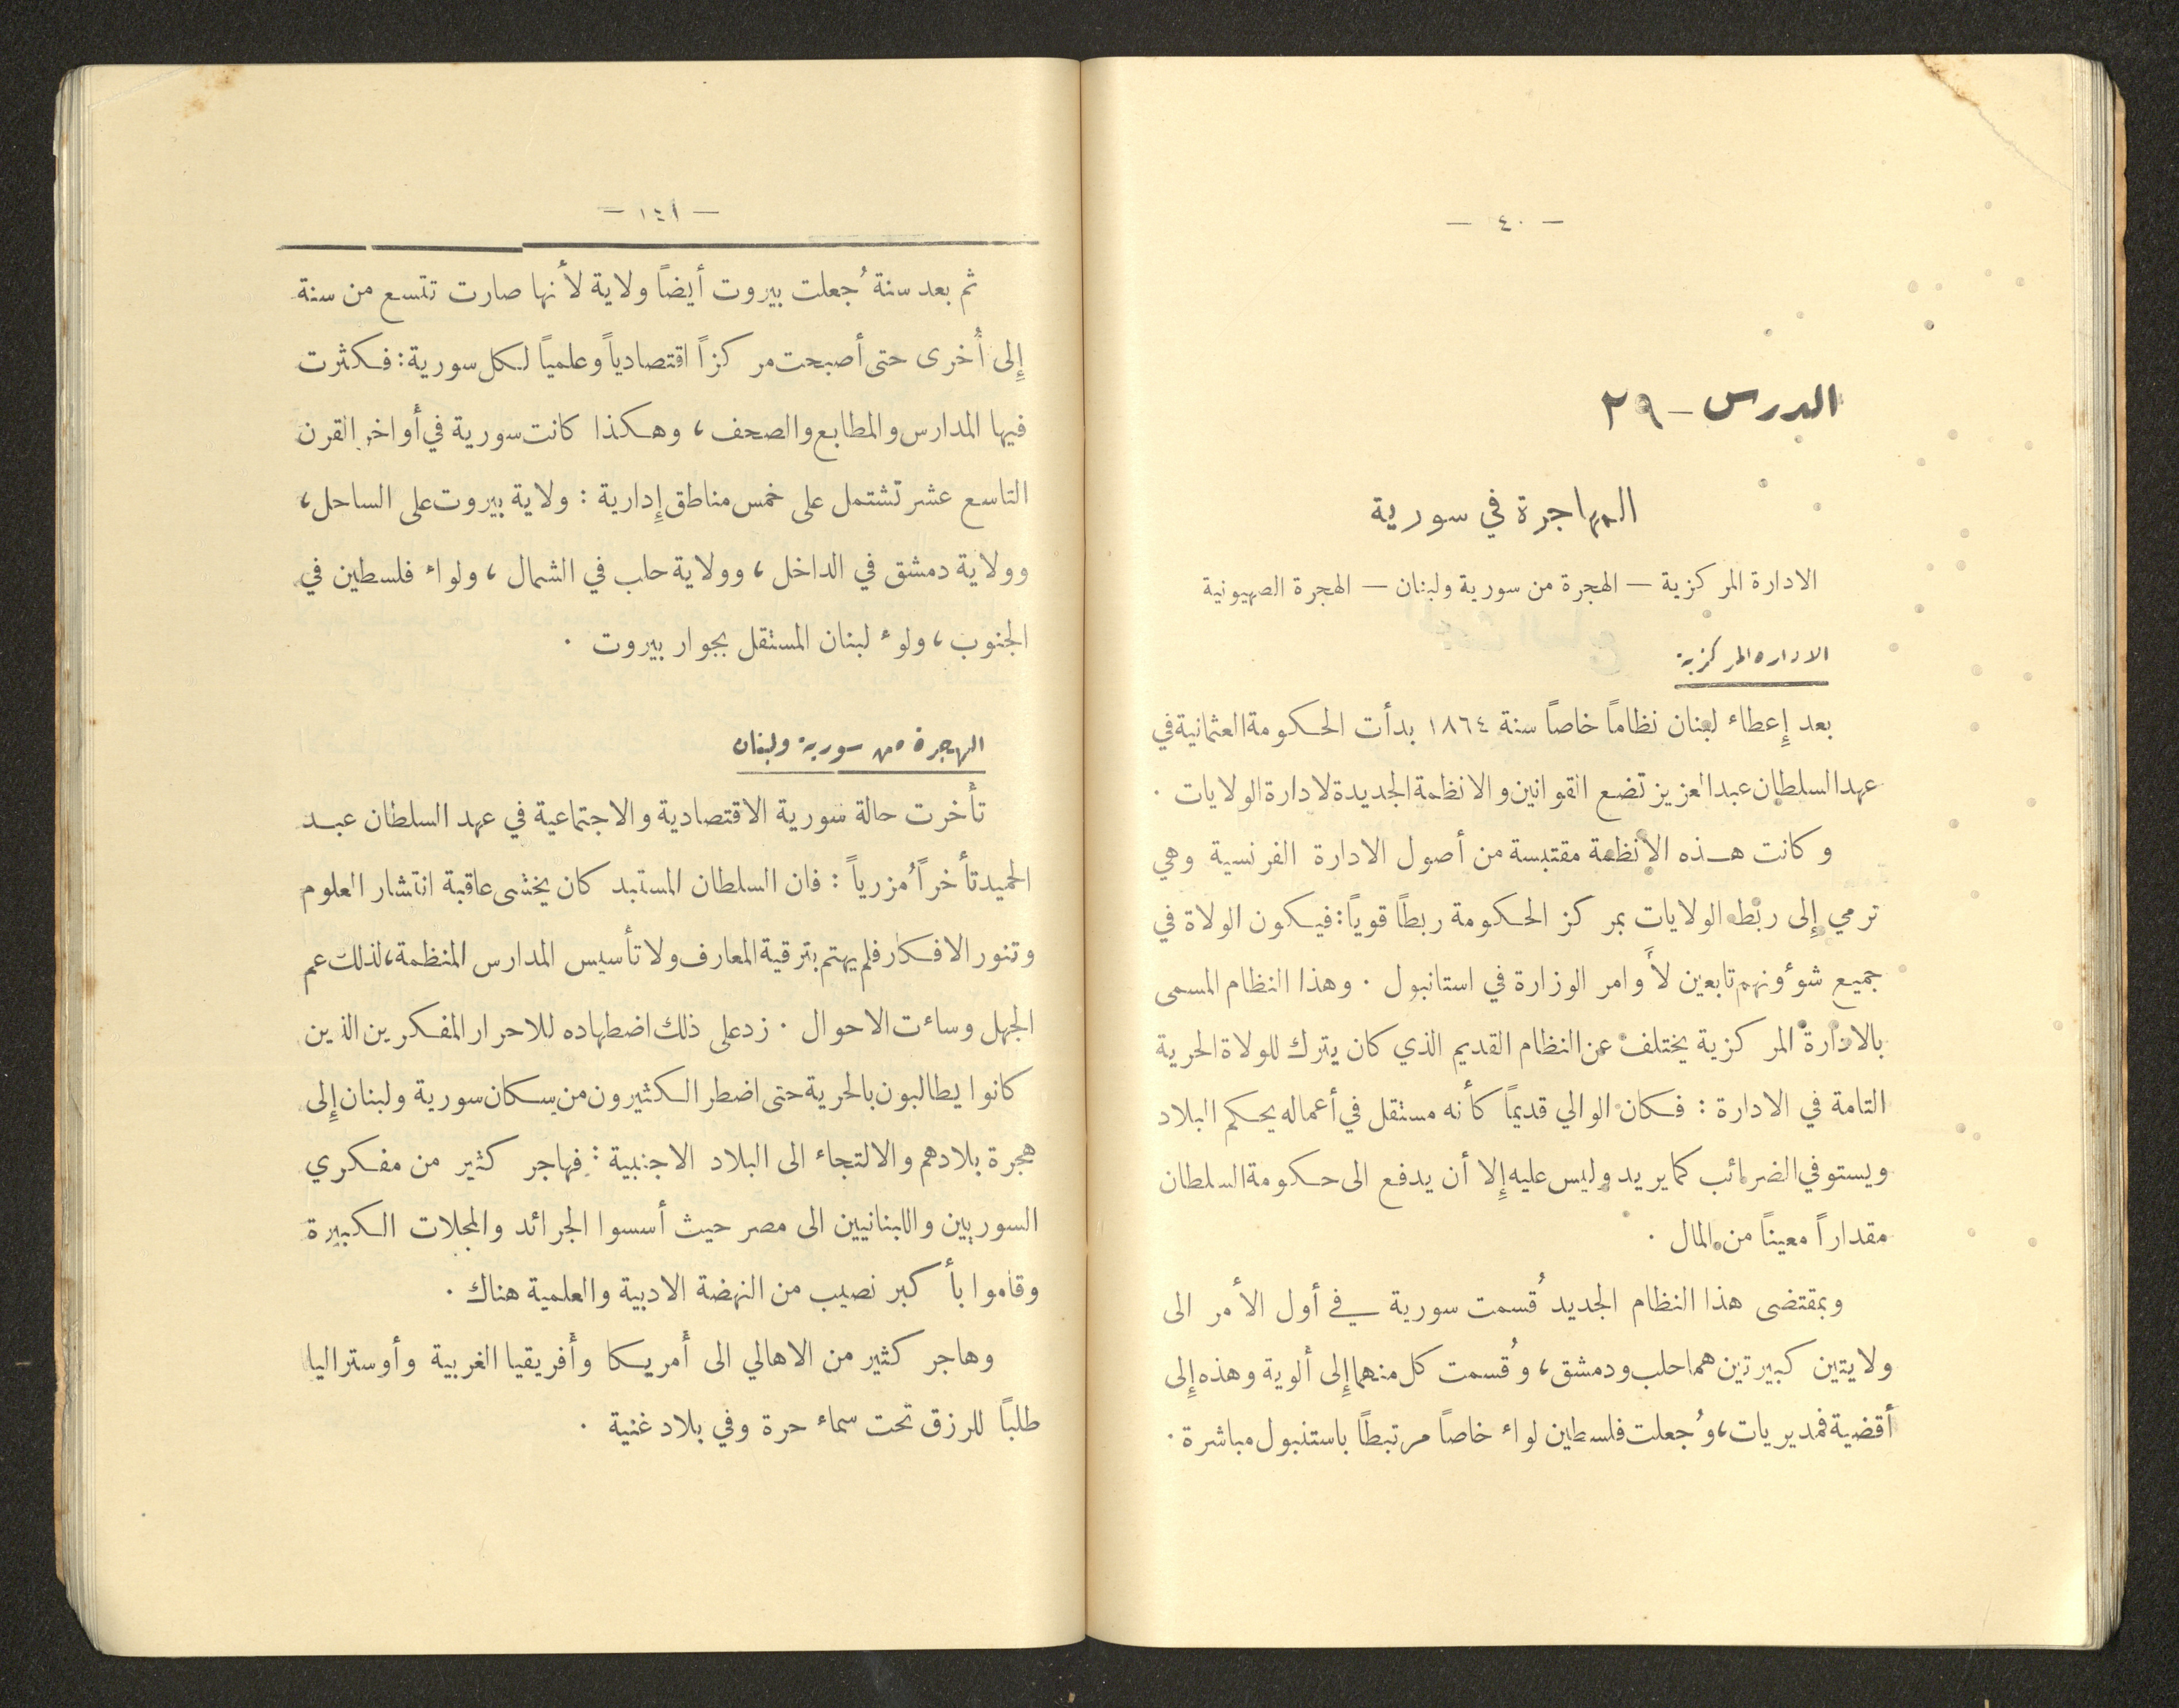 — ٤٠ —
الدرس — ٢٩
المهاجرة في سورية
الادارة المركزية — الهجرة من سورية ولبنان — الهجرة الصهيونية
الادارة المركزية
بعد إِعطاء لبنان نظاماً خاصاً سنة ١٨٦٤ بدأت الحكومة العثمانية في
عهد السلطان عبد العزيز تضع القوانين والانظمة الجديدة لادارة الولايات .
وكانت هذه الانظمة مقتبسة من أصول الادارة الفرنسية وهي
ترمي إِلى ربط الولايات بمركز الحكومة ربطاً قوياً : فيكون الولاة في
جميع شؤونهم تابعين لأَوامر الوزارة في استانبول . وهذا النظام المسمى
بالادارة المركزية يختلف عن النظام القديم الذي كان يترك للولاة الحرية
التامة في الادارة : فكان الوالي قديماً كأنه مستقل في أعماله يحكم البلاد
ويستوفي الضرائب كما يريد وليس عليه إِلا أن يدفع الى حكومة السلطان
مقداراً معيناً من المال .
وبمقتضى هذا النظام الجديد قُسمت سورية في أول الأمر الى
ولايتين كبيرتين هما حلب ودمشق ، وقُسمت كل منهما إِلى ألوية وهذه إِلى
أقضية فمديريات ، وجُعلت فلسطين لواء خاصاً مرتبطاً باستنبول مباشرة .
— ١٤١ —
ثم بعد سنة جُعلت بيروت أيضاً ولاية لأنها صارت تتسع من سنة
إِلى أُخرى حتى أصبحت مركزاً اقتصادياً وعلمياً لكل سورية : فكثرت
فيها المدارس والمطابع والصحف ، وهكذا كانت سورية في أواخر القرن
التاسع عشر تشتمل على خمس مناطق إِدارية : ولاية بيروت على الساحل ،
وولاية دمشق في الداخل ، وولاية حلب في الشمال ، ولواء فلسطين في
الجنوب ، ولوء لبنان المستقل بجوار بيروت .
الهجرة من سورية ولبنان
تأخرت حالة سورية الاقتصادية والاجتماعية في عهد السلطان عبد
الحميد تأخراً مُزرياً : فان السلطان المستبد كان يخشى عاقبة انتشار العلوم
وتنور الافكار فلم يهتم بترقية المعارف ولا تأسيس المدارس المنظمة ، لذلك عم
الجهل وساءت الاحوال . زد على ذلك اضطهاده للاحرار المفكرين الذين
كانوا يطالبون بالحرية حتى اضطر الكثيرون من سكان سورية ولبنان إِلى
هجرة بلادهم والالتجاء الى البلاد الاجنبية : فهاجر كثير من مفكري
السوريين واللبنانيين الى مصر حيث أسسوا الجرائد والمجلات الكبيرة
وقاموا بأكبر نصيب من النهضة الادبية والعلمية هناك .
وهاجر كثير من الاهالي الى أَمريكا وأَفريقيا الغربية وأوستراليا
طلباً للرزق تحت سماء حرة وفي بلاد غنية .